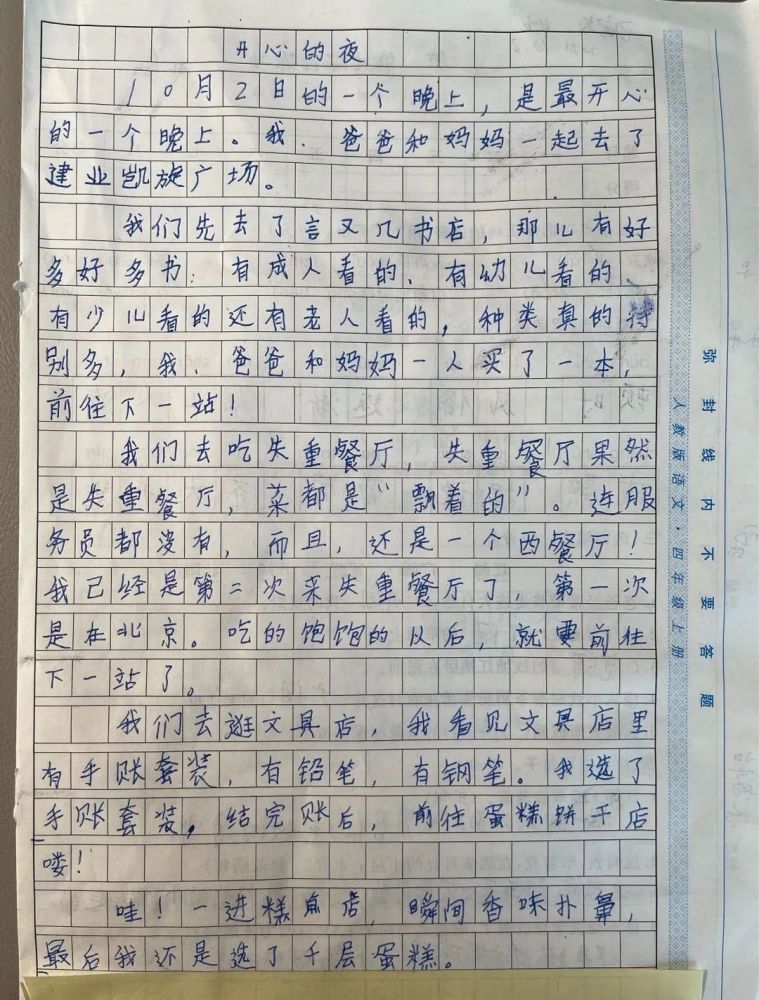 开心的夜
10月2日的一个晚上，是最开心
的一个晚上。我、爸爸和妈妈一起去了
建业凯旋广场。
我们先去了言又几书店，那儿有好
多好多书：有成人看的、有幼儿看的、
有少儿看的还有老人看的，种类真的特
别多，我、爸爸和妈妈一人买了一本，
前往下一站！
我们去吃失重餐厅，失重餐厅果然
是失重餐厅，菜都是“飘着的”。连服
务员都没有，而且，还是一个西餐厅！
我已经是第二次来失重餐厅了，第一次
是在北京。吃的饱饱的以后，就要前往
下一站了。
我们去逛文具店，我看见文具店里
有手账套装，有铅笔，有钢笔。我选了
手账套装，结完账后，前往蛋糕饼干店
喽！
哇！一进糕点店，瞬间香味扑鼻，
最后我还是选了千层蛋糕。
弥封线内不要答题
人教版语文·四年级上册